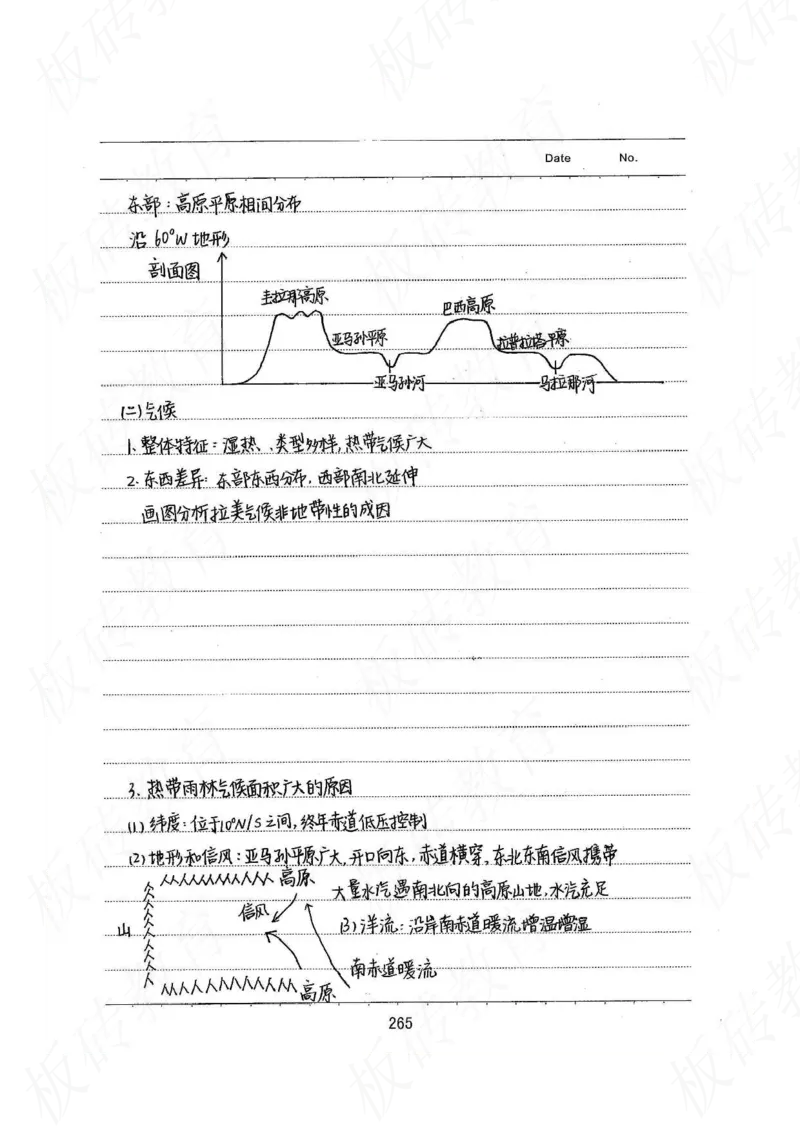 Date No.
东部：高原平原相间分布
沿60°W地形
剖面图
圭拉那高原
巴西高原
亚马孙平原
拉普拉塔平原
亚马孙河
马拉那河
(二)气候
1. 整体特征：湿热、类型多样，热带气候广大
2. 东西差异：东部东西分布，西部南北延伸
画图分析拉美气候非地带性的成因
3. 热带雨林气候面积广大的原因
(1) 纬度：位于10°N/S之间，终年赤道低压控制
(2) 地形和信风：亚马孙平原广大，开口向东，赤道横穿，东北东南信风携带
高原
大量水汽遇南北向的高原山地，水汽充足
信风
山
(3) 洋流：沿岸南赤道暖流增温增湿
南赤道暖流
高原
265
板砖教育
板砖教育
板砖教育
板砖教育
板砖教育
板砖教育
板砖教育
板砖教育
板砖教育